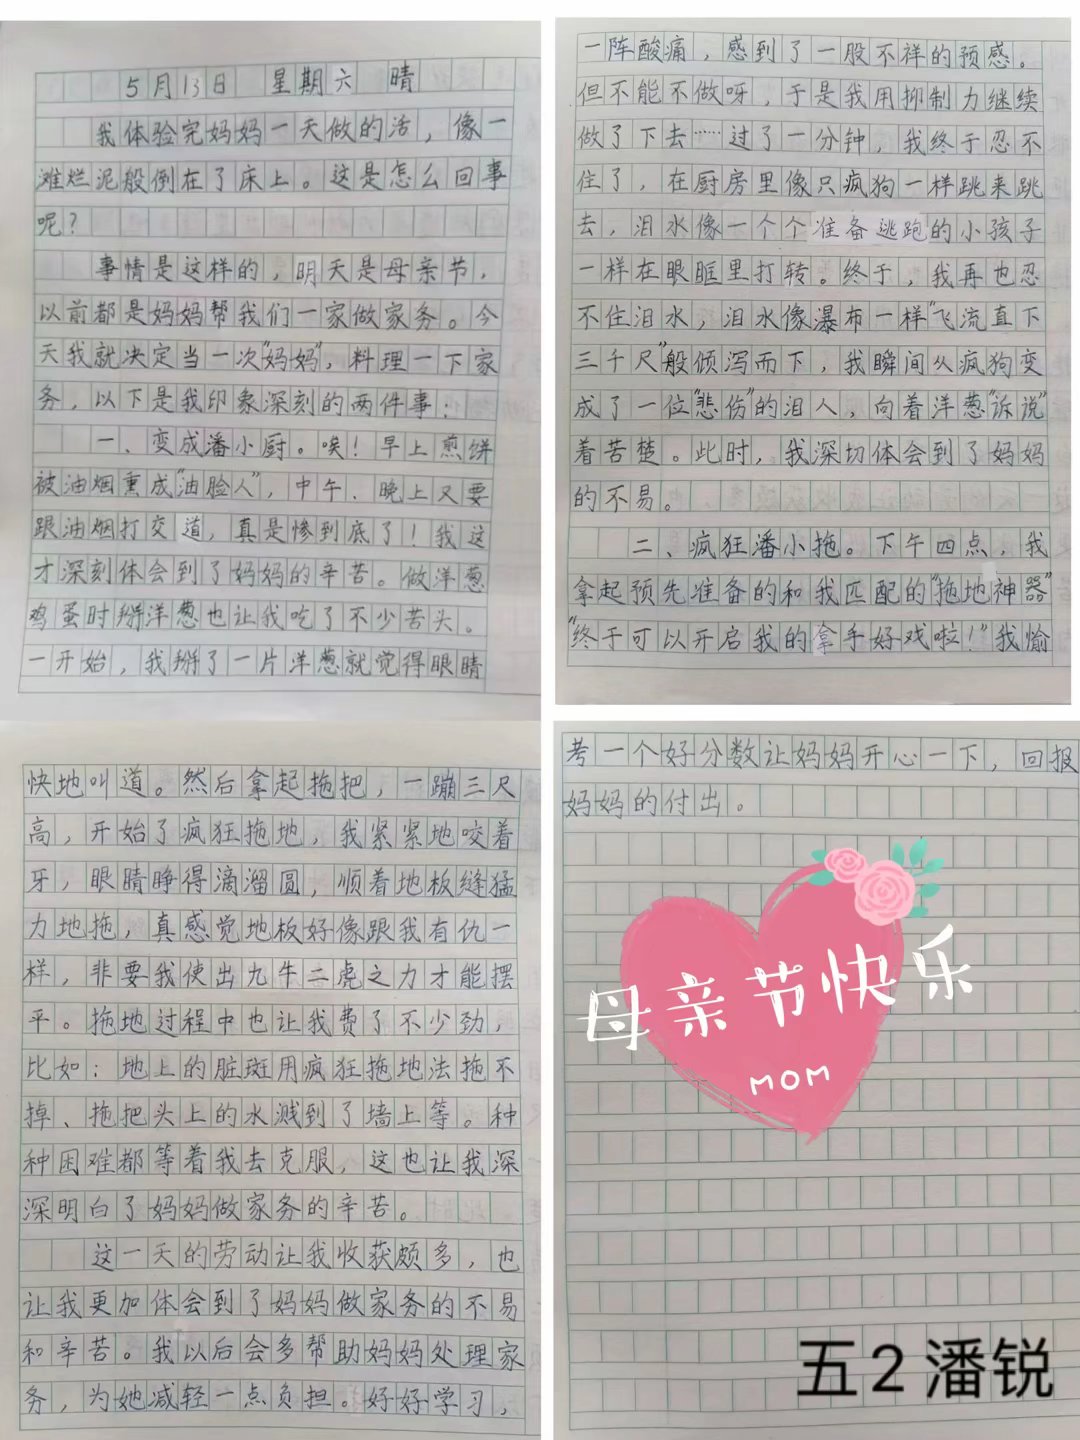 5月13日 星期六 晴
我体验完妈妈一天做的活，像一
滩烂泥般倒在了床上。这是怎么回事
呢？
事情是这样的，明天是母亲节，
以前都是妈妈帮我们一家做家务。今
天我就决定当一次“妈妈”，料理一下家
务，以下是我印象深刻的两件事：
一、变成潘小厨。唉！早上煎饼
被油烟熏成“油脸人”，中午、晚上又要
跟油烟打交道，真是惨到底了！我这
才深刻体会到了妈妈的辛苦。做洋葱
鸡蛋时掰洋葱也让我吃了不少苦头。
一开始，我掰了一片洋葱就觉得眼睛
一阵酸痛，感到了一股不祥的预感。
但不能不做呀，于是我用抑制力继续
做了下去……过了一分钟，我终于忍不
住了，在厨房里像只疯狗一样跳来跳
去，泪水像一个个准备逃跑的小孩子
一样在眼眶里打转。终于，我再也忍
不住泪水，泪水像瀑布一样“飞流直下
三千尺”般倾泻而下，我瞬间从疯狗变
成了一位“悲伤”的泪人，向着洋葱“诉说”
着苦楚。此时，我深切体会到了妈妈
的不易。
二、疯狂潘小拖。下午四点，我
拿起预先准备的和我匹配的“拖地神器”
“终于可以开启我的拿手好戏啦！”我愉
快地叫道。然后拿起拖把，一蹦三尺
高，开始了疯狂拖地，我紧紧地咬着
牙，眼睛睁得滴溜圆，顺着地板缝猛
力地拖，真感觉地板好像跟我有仇一
样，非要我使出九牛二虎之力才能摆
平。拖地过程中也让我费了不少劲，
比如：地上的脏斑用疯狂拖地法拖不
掉、拖把头上的水溅到了墙上等。种
种困难都等着我去克服，这也让我深
深明白了妈妈做家务的辛苦。
这一天的劳动让我收获颇多，也
让我更加体会到了妈妈做家务的不易
和辛苦。我以后会多帮助妈妈处理家
务，为她减轻一点负担。好好学习，
考一个好分数让妈妈开心一下，回报
妈妈的付出。
母亲节快乐
MOM
五2潘锐